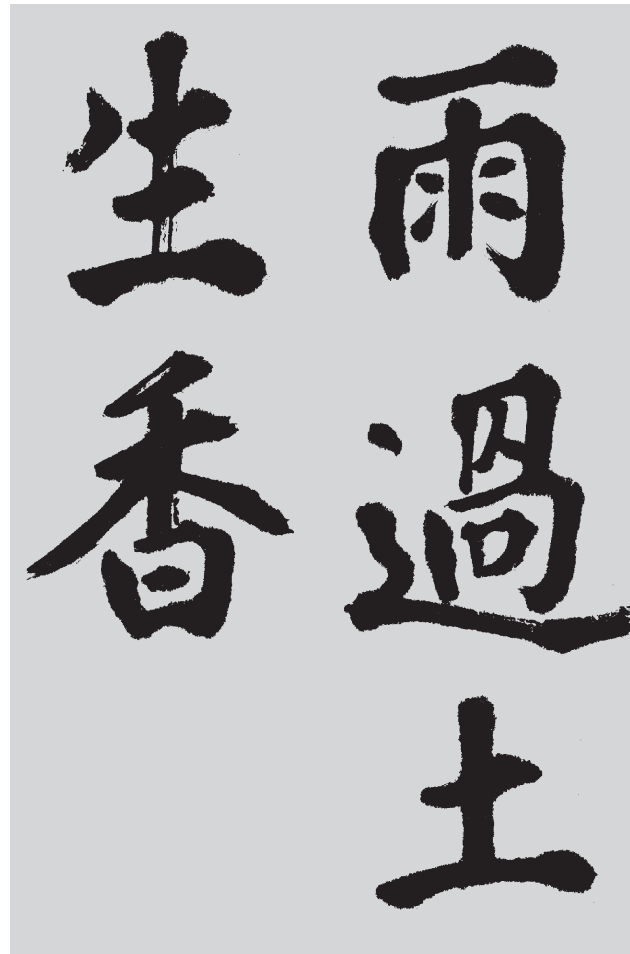 雨過土
生香